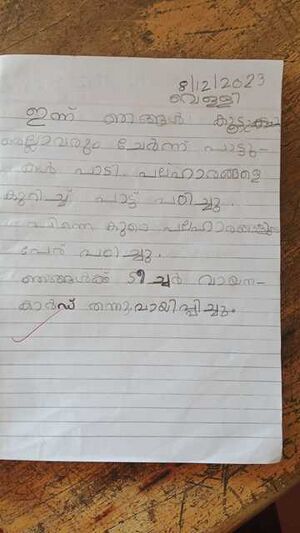 8/12/2023
വെള്ളി
ഇന്ന് ഞങ്ങൾ കൂട്ടുകാ
രെല്ലാവരും ചേർന്ന് പാട്ടു-
കൾ പാടി. പലഹാരങ്ങളെ
കുറിച്ച് പാട്ട് പഠിച്ചു.
പിന്നെ കുറെ പലഹാരങ്ങളുടെ
പേര് പഠിച്ചു.
ഞങ്ങൾക്ക് ടീച്ചർ വായന-
കാർഡ് തന്നു.വായിപ്പിച്ചു.